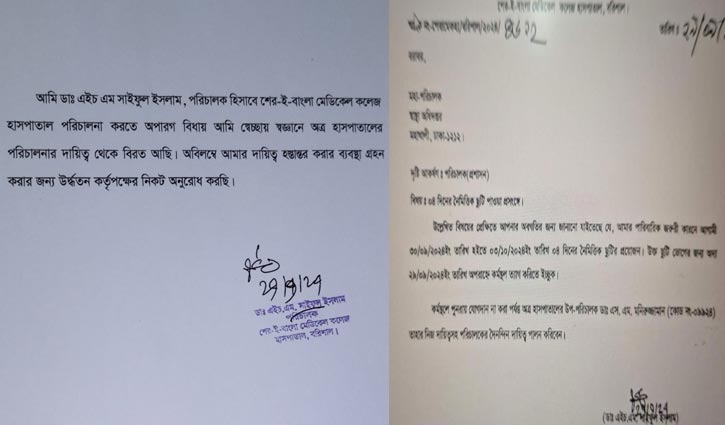 আমি ডাঃ এইচ এম সাইফুল ইসলাম, পরিচালক হিসাবে শের-ই-বাংলা মেডিকেল কলেজ
হাসপাতাল পরিচালনা করতে অপারগ বিধায় আমি স্বেচ্ছায় স্বজ্ঞানে অত্র হাসপাতালের
পরিচালনার দায়িত্ব থেকে বিরত আছি। অবিলম্বে আমার দায়িত্ব হস্তান্তর করার ব্যবস্থা গ্রহন
করার জন্য উর্দ্ধতন কর্তৃপক্ষের নিকট অনুরোধ করছি।
ডাঃ এইচ.এম. সাইফুল ইসলাম
পরিচালক
শের-ই-বাংলা মেডিকেল কলেজ
হাসপাতাল, বরিশাল।
শের-ই-বাংলা মেডিকেল কলেজ হাসপাতাল, বরিশাল।
তারিখ
বরাবর,
মহা-পরিচালক
স্বাস্থ্য অধিদপ্তর
মহাখালী, ঢাকা-১২১২।
দৃষ্টি আকর্ষণ : পরিচালক(প্রশাসন)
বিষয় : ০৪ দিনের নৈমিত্তিক ছুটি পাওয়া প্রসঙ্গে।
উল্লেখিত বিষয়ের প্রেক্ষিতে আপনার অবগতির জন্য জানানো যাইতেছে যে, আমার পারিবারিক জরুরী কারনে আগামী
৩০/০৯/২০২৪ইং তারিখ হইতে ০৩/১০/২০২৪ইং তারিখ ০৪ দিনের নৈমিত্তিক ছুটির প্রয়োজন। উক্ত ছুটি ভোগের জন্য অদ্য
২৯/০৯/২০২৪ইং তারিখ অপরাহ্নে কর্মস্থল ত্যাগ করিতে ইচ্ছুক।
কর্মস্থলে পুনরায় যোগদান না করা পর্যন্ত অত্র হাসপাতালের উপ-পরিচালক ডাঃ এস. এম. মনিরুজ্জামান (কোড নং-০৯৯২৪)
তাহার নিজ দায়িত্বসহ পরিচালকের দৈনন্দিন দায়িত্ব পালন করিবেন।
(ডাঃ এইচ.এম. সাইফুল ইসলাম)